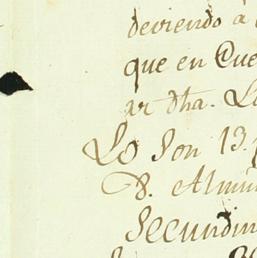 deviendo á
que en Que
ar dha. L
Lo Son 13.
D. Almu
Secundin